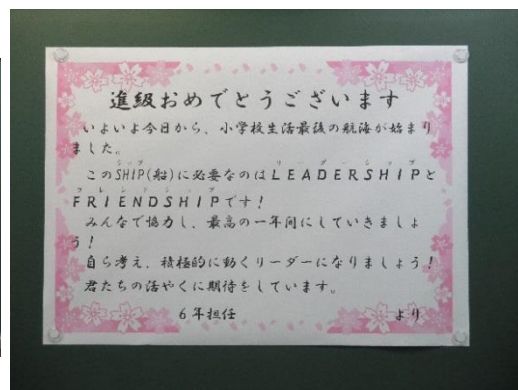 進級おめでとうございます
いよいよ今日から、小学校生活最後の航海が始まり
ました。
シップ　リーダーシップ
このSHIP(船)に必要なのはLEADERSHIPと
フレンドシップ
FRIENDSHIPです!
みんなで協力し、最高の一年間にしていきましょ
う!
自ら考え、積極的に動くリーダーになりましょう!
君たちの活やくに期待をしています。
6年担任　より